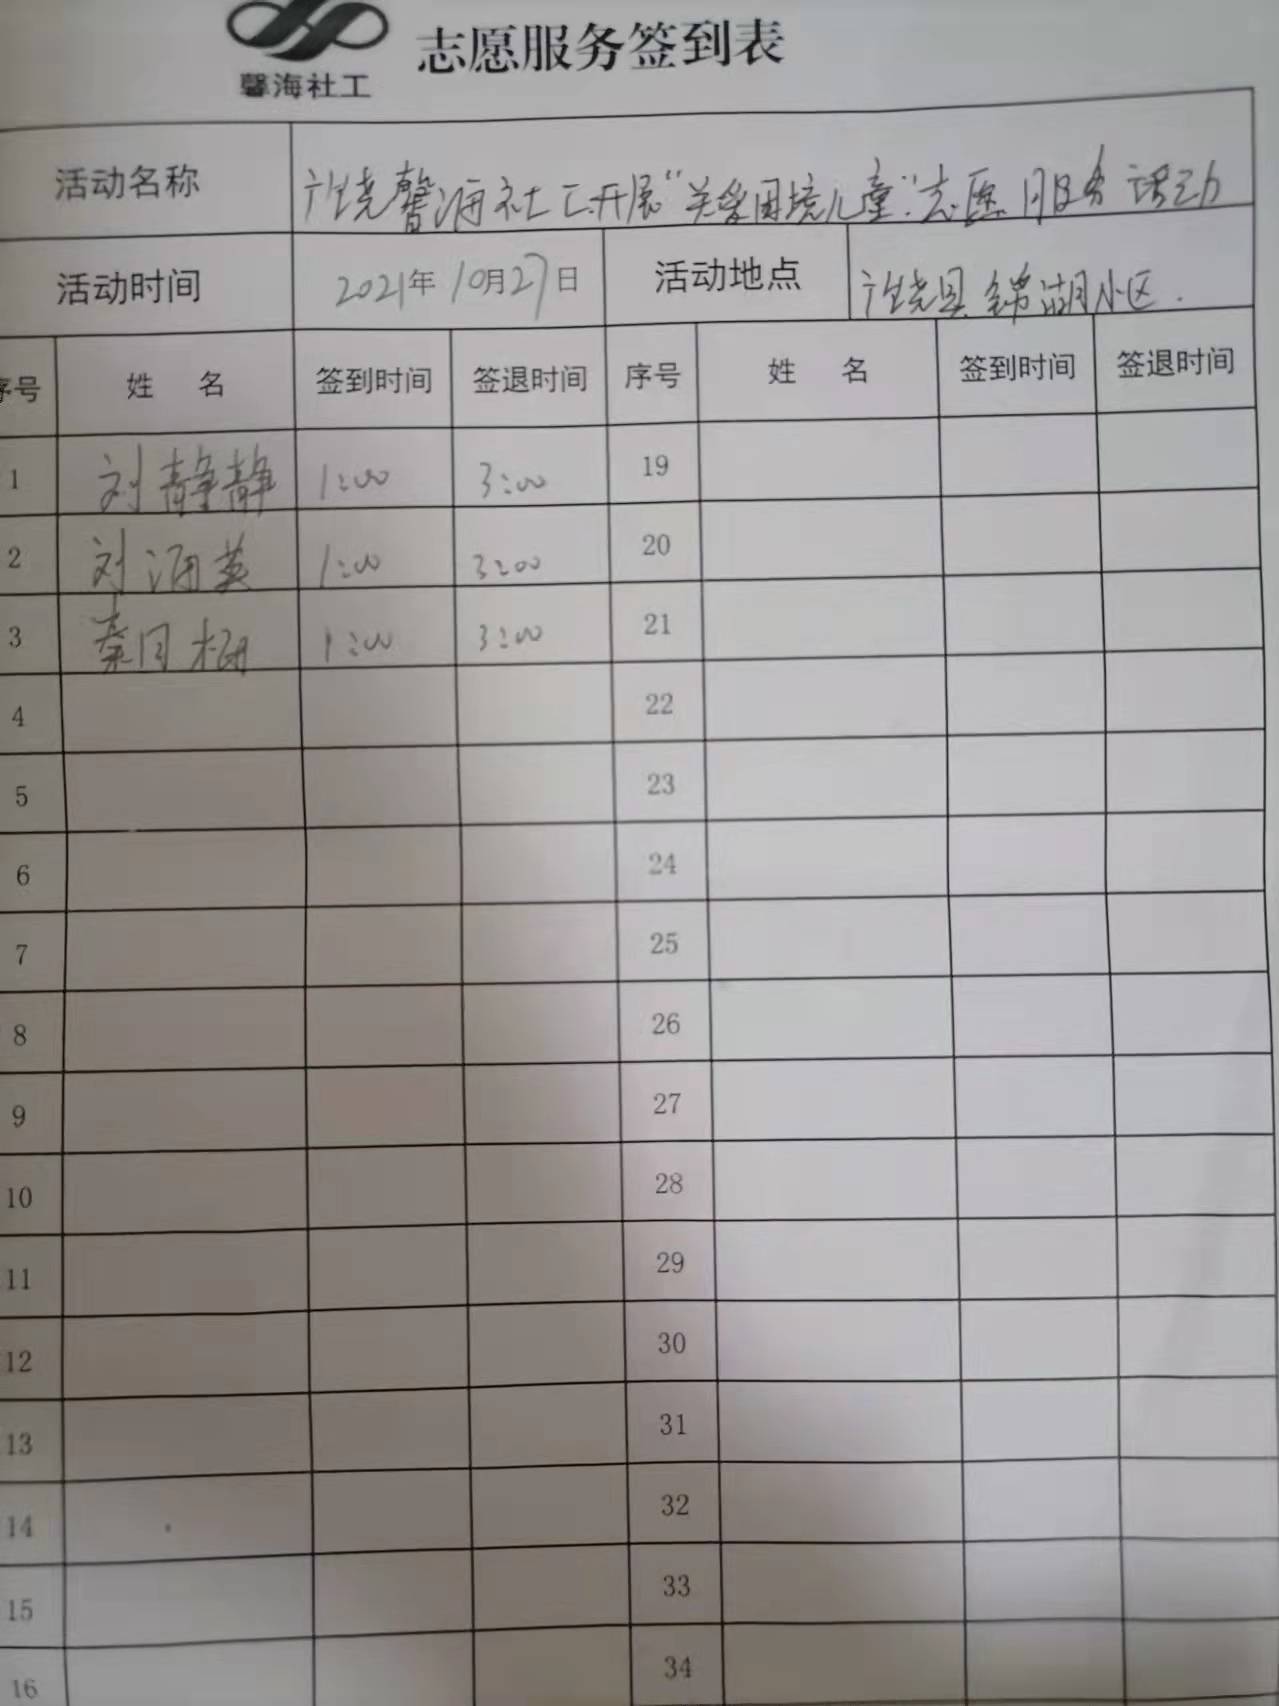 馨海社工
志愿服务签到表
活动名称 广饶馨海社工开展“关爱困境儿童”志愿服务活动
活动时间 2021年10月27日 活动地点 广饶县锦湖小区.
序号 姓 名 签到时间 签退时间 序号 姓 名 签到时间 签退时间
1 刘静静 1:00 3:00 19
2 刘海英 1:00 3:00 20
3 秦月 1:00 3:00 21
4 22
5 23
6 24
7 25
8 26
9 27
10 28
11 29
12 30
13 31
14 32
15 33
16 34